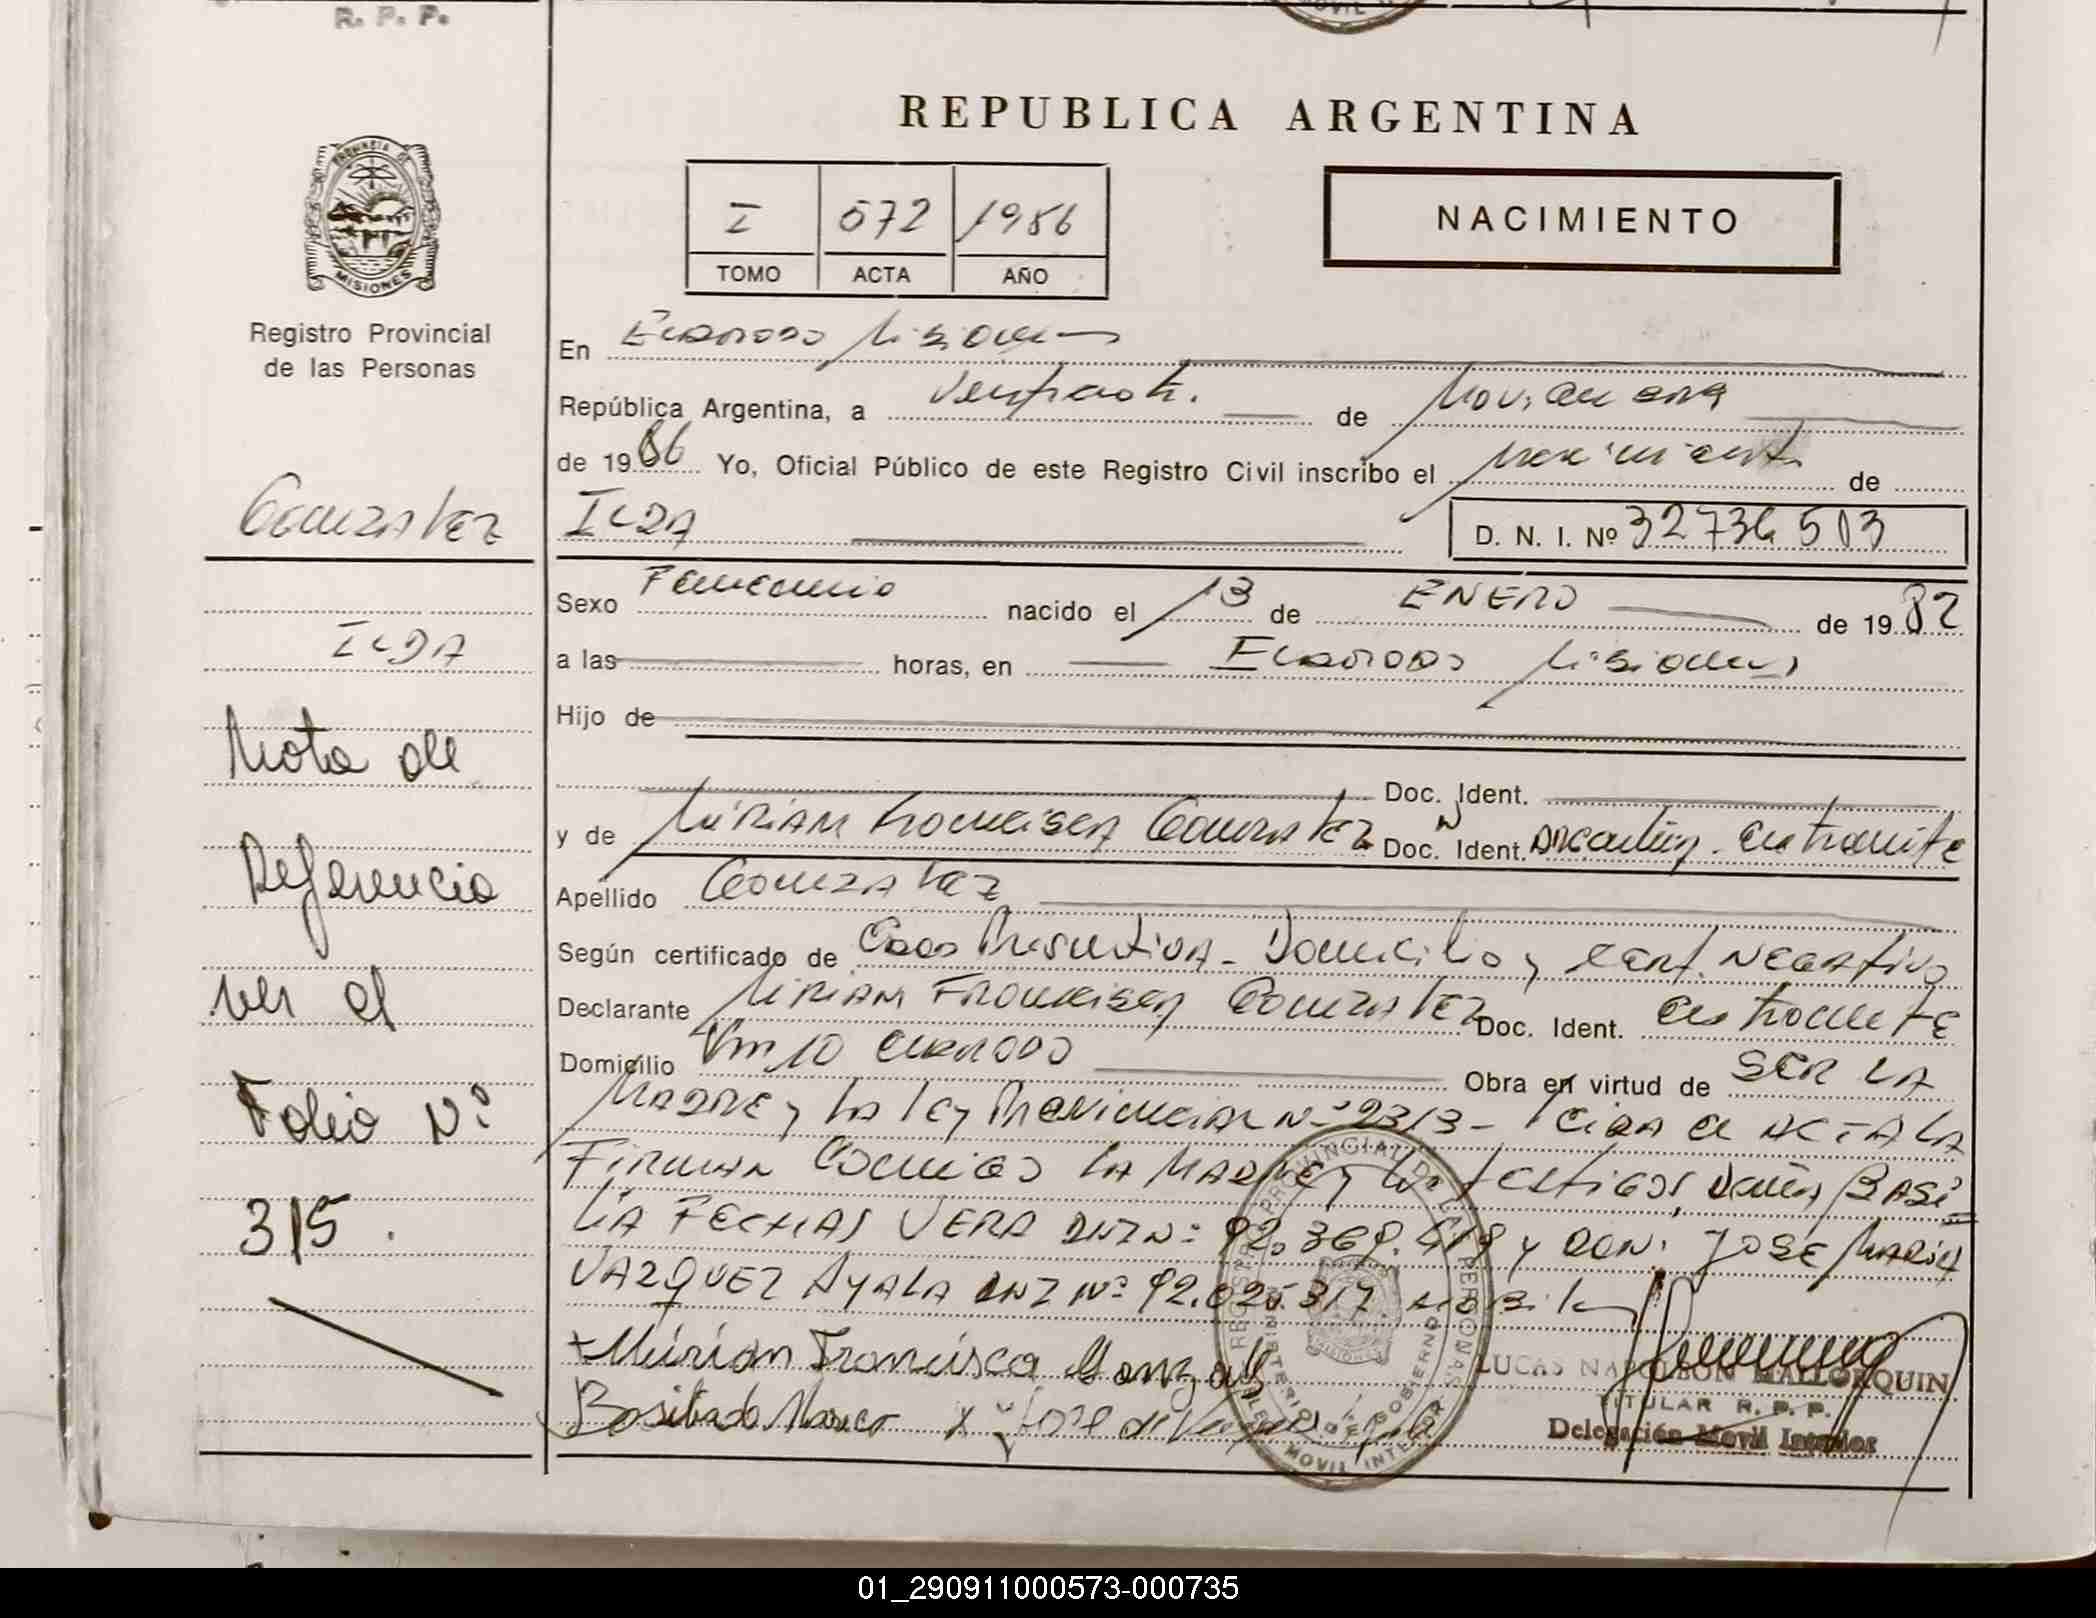 R. P. P.
REPUBLICA ARGENTINA
PROVINCIA DE MISIONES
Registro Provincial
de las Personas
I 572 1986
TOMO ACTA AÑO
NACIMIENTO
En Eldorado Misiones
República Argentina, a de Noviembre
de 1986 Yo, Oficial Público de este Registro Civil inscribo el Nacimiento de
ILDA
D. N. I. Nº 32736513
Sexo Femenino nacido el 13 de ENERO de 1982
a las horas, en Eldorado Misiones
Hijo de
Doc. Ident.
y de Miriam Francisca Gonzalez Doc. Ident. Argentina en tramite
Apellido Gonzalez
Según certificado de Edad Presuntiva - Domicilio y cert. Negativo
Declarante Miriam Francisca Gonzalez Doc. Ident. en tramite
Domicilio Km 10 Eldorado Obra en virtud de SER LA
MADRE y La Ley Provincial Nº 2313 - Leida el ACTA LA
Firman Conmigo La MADRE y los testigos, Doña BASI=
LIA FECHAS VERA DNI Nº 92.369.419 y DON: JOSÉ MARIA
VAZQUEZ AYALA DNI Nº 92.025.317
+ Mirian Francisca Gonzalez
LUCAS NAPOLEON MALLORQUIN
TITULAR R. P. P.
Delegación Movil Interior
REGISTRO PROVINCIAL DE LAS PERSONAS
MINISTERIO DE GOBIERNO
MOVIL INTERIOR
Gonzalez
ILDA
Nota de
Referencia
ver el
Folio Nº
315.
01_290911000573-000735